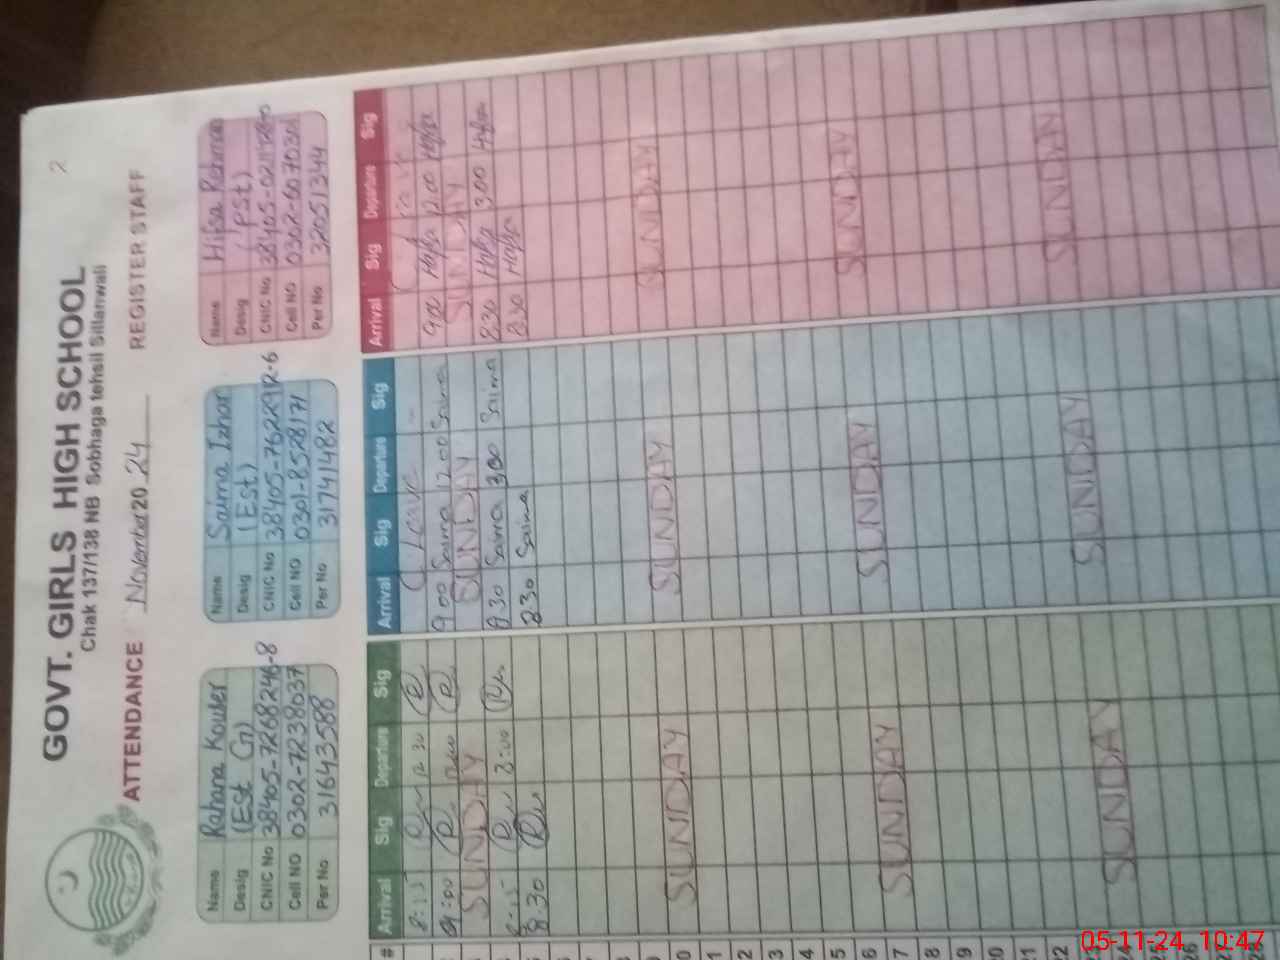 2
GOVT. GIRLS HIGH SCHOOL
Chak 137/138 NB Sobhaga tehsil Sillanwali
ATTENDANCE November 2024 REGISTER STAFF
Name Rahana Kouser
Desig (Est G)
CNIC No 38405-7268246-8
Cell NO 0302-7238037
Per No 31643588
Name Saima Izhar
Desig (Est)
CNIC No 38405-7622912-6
Cell NO 0301-8528171
Per No 31741482
Name Hifsa Rehman
Desig (PSt)
CNIC No
Cell NO
Per No 32051344
# Arrival Sig Departure Sig Arrival Sig Departure Sig Arrival Sig Departure Sig
8:15 12 30 Leave
9:00 12:00 9 00 Saima 12 00 Saima 9:00 Hifsa 12.00 Hifsa
SUNDAY SUNDAY SUNDAY
8:15 3:00 8 30 Saima 3 00 Saima 8 30 Hifsa 3.00 Hifsa
8:30 8 30 Saima 8 30 Hifsa
SUNDAY SUNDAY SUNDAY
SUNDAY SUNDAY SUNDAY
SUNDAY SUNDAY SUNDAY
05-11-24 10:47